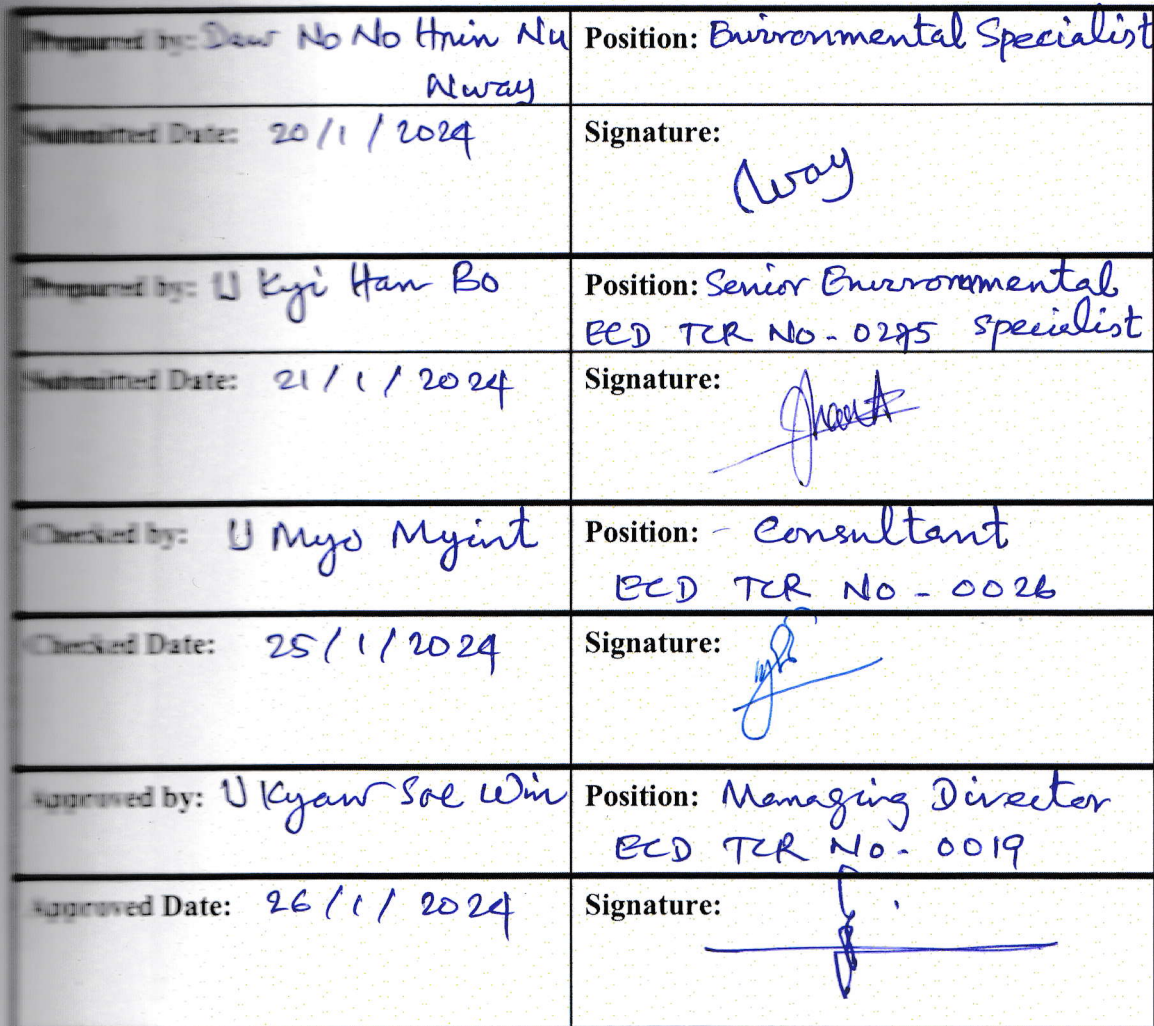 Prepared by: Daw No No Hnin Nu
Nway
Position: Environmental Specialist
Submitted Date: 20/1/2024
Signature:
Nway
Prepared by: U Kyi Han Bo
Position: Senior Environmental
ECD TCR No - 0295 Specialist
Submitted Date: 21/1/2024
Signature:
Checked by: U Myo Myint
Position: - Consultant
ECD TCR No - 0026
Checked Date: 25/1/2024
Signature:
Approved by: U Kyaw Soe Win
Position: Managing Director
ECD TCR No - 0019
Approved Date: 26/1/2024
Signature: